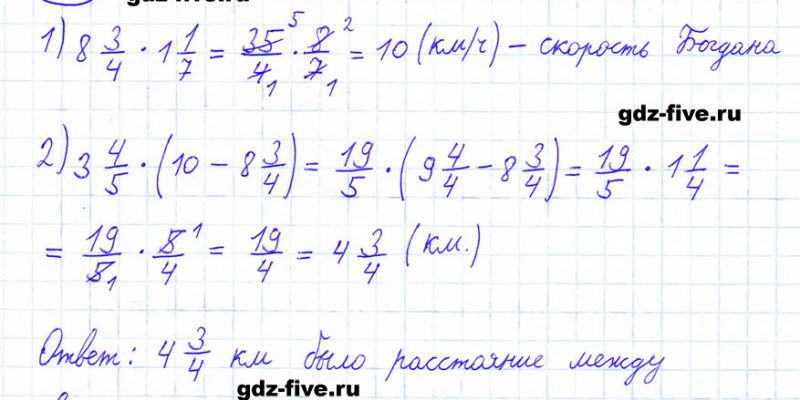 gdz-five.ru
1) 8 3/4 · 1 1/7 = 35/4 · 8/7 = 10 (км/ч) – скорость Богдана
gdz-five.ru
2) 3 4/5 · (10 – 8 3/4) = 19/5 · (9 4/4 – 8 3/4) = 19/5 · 1 1/4 =
= 19/5 · 5/4 = 19/4 = 4 3/4 (км.)
Ответ: 4 3/4 км было расстояние между
gdz-five.ru